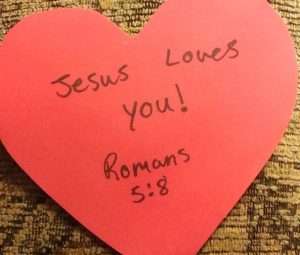 Jesus Loves
You!
Romans
5:8